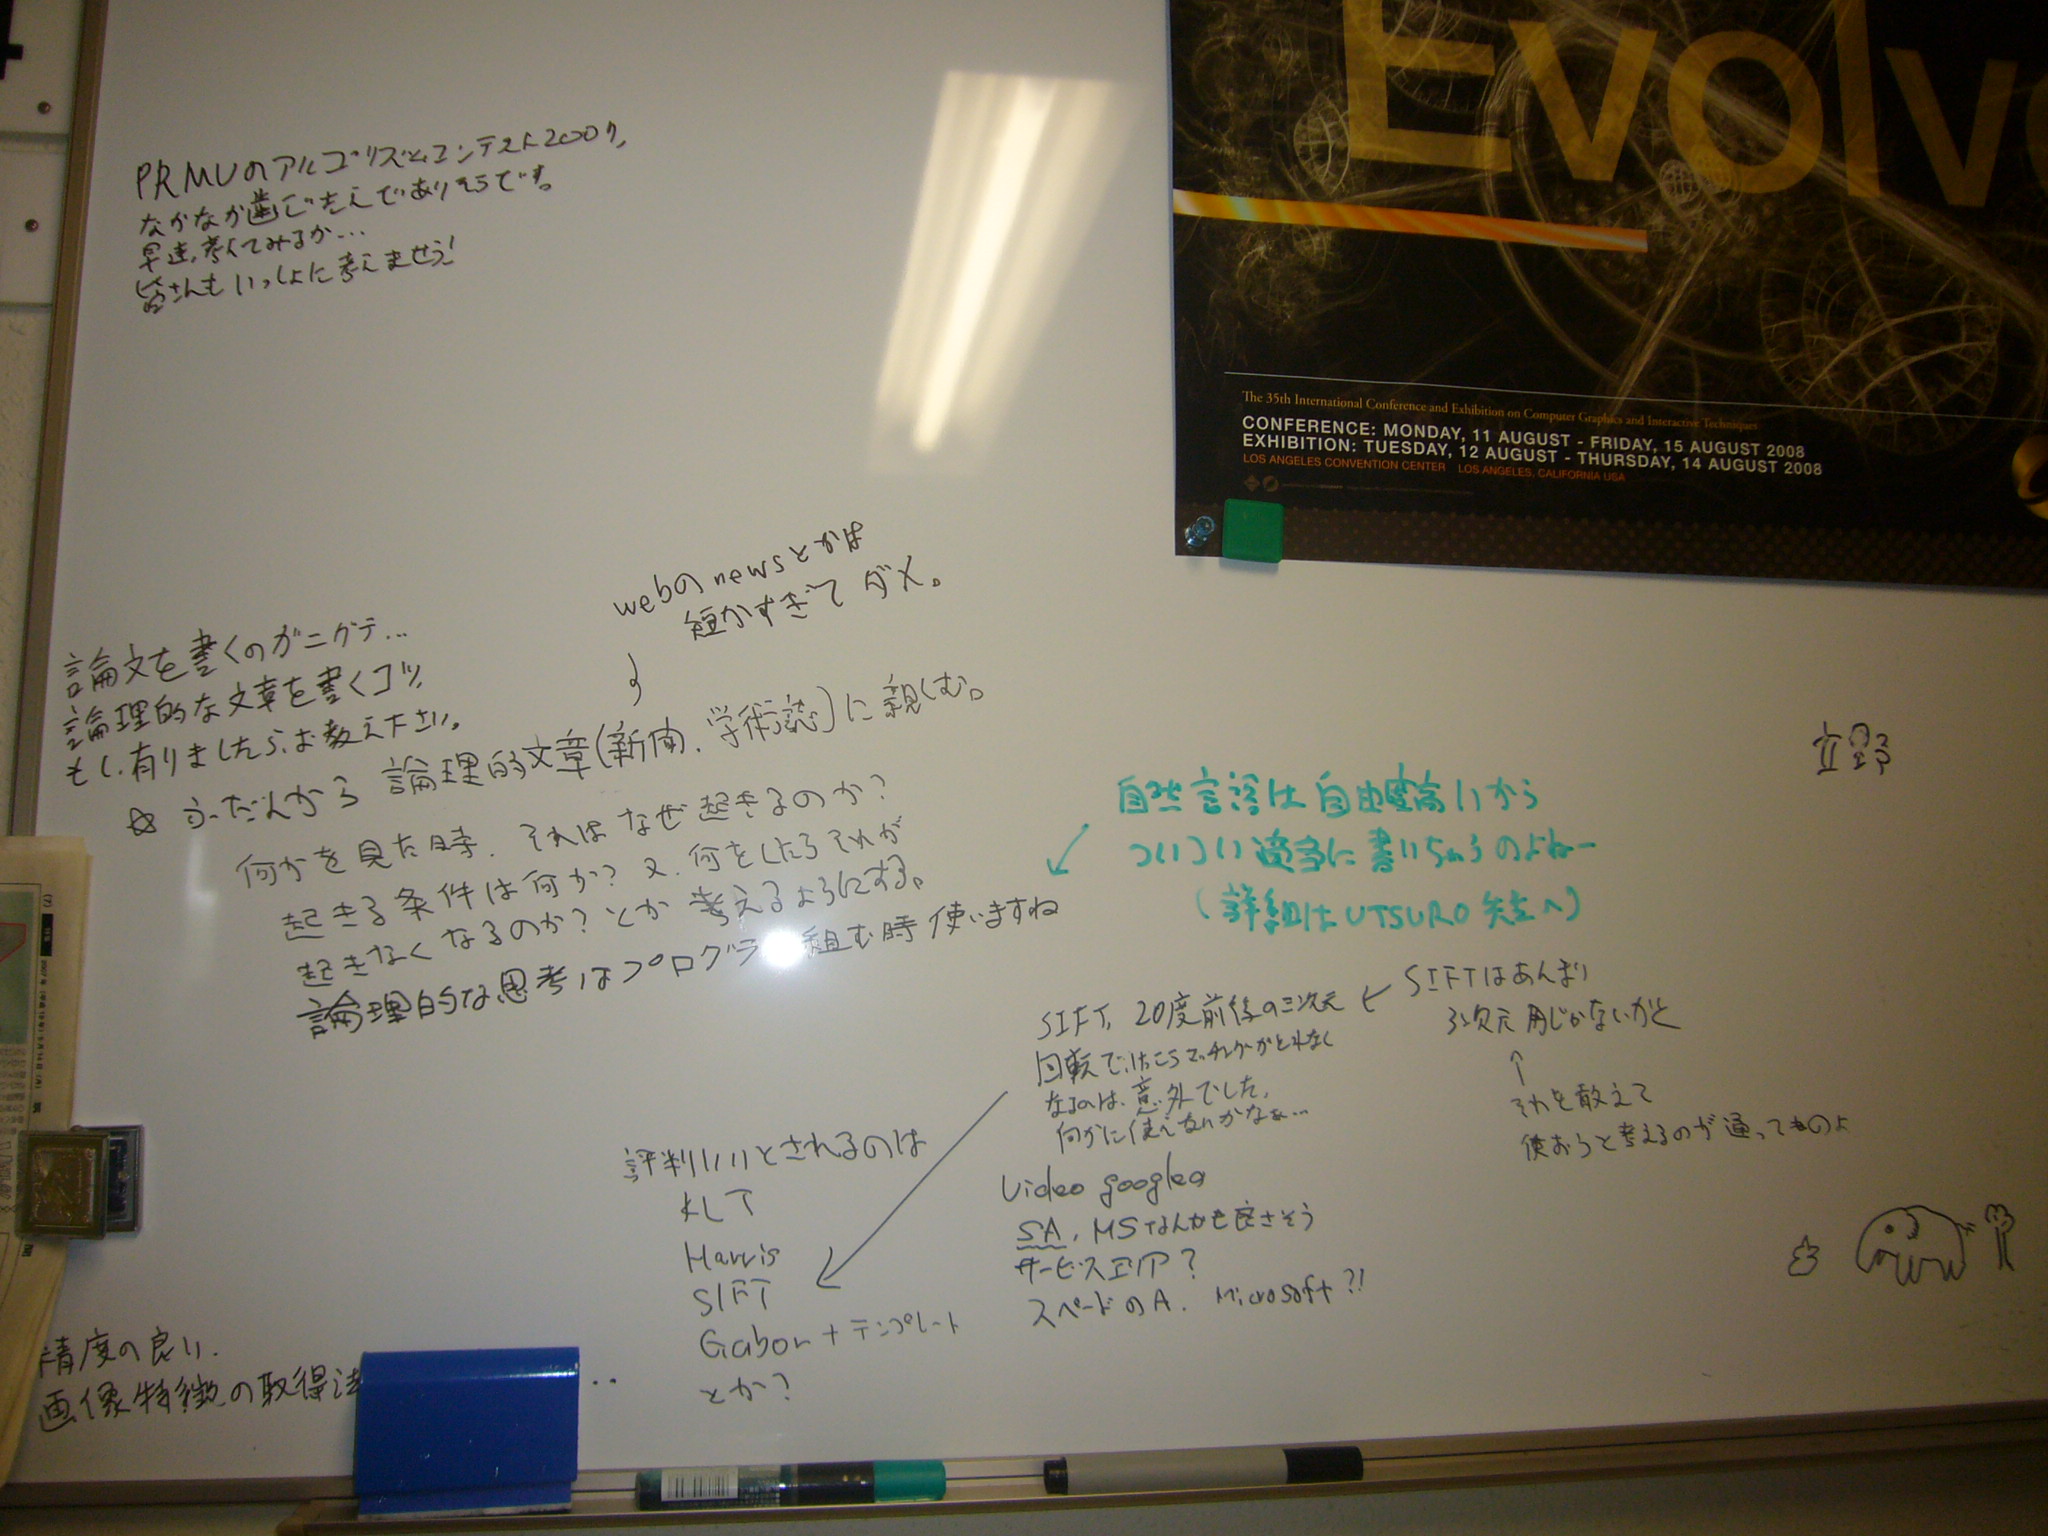 PRMUのアルゴリズムコンテスト2007,
なかなか歯ごたえでありそうです。
早速、考えてみるか…
皆さんもいっしょに考えませう!
Evolve
The 35th International Conference and Exhibition on Computer Graphics and Interactive Techniques
CONFERENCE: MONDAY, 11 AUGUST - FRIDAY, 15 AUGUST 2008
EXHIBITION: TUESDAY, 12 AUGUST - THURSDAY, 14 AUGUST 2008
LOS ANGELES CONVENTION CENTER LOS ANGELES, CALIFORNIA USA
webのnewsとかは
短かすぎてダメ。
論文を書くのがニガテ…
論理的な文章を書くコツ,
もし、有りましたら、お教え下さい。
☆ ふだんから 論理的文章(新聞、学術誌)に親しむ。
何かを見た時、それはなぜ起きるのか?
起きる条件は何か? 又、何をしたらそれが
起きなくなるのか? とか 考えるようにする。
論理的な思考はプログラム組む時使いますね
自然言語は自由度高いから
ついつい適当に書いちゃうのよねー
(詳細はUTSURO先生へ)
SIFT, 20度前後の三次元
回転で、けっこうマッチングがとれなく
なるのは、意外でした。
何かに使えないかなぁ…
SIFTはあんまり
3次元用じゃないかと
それを敢えて
使おうと考えるのが通ってものよ
評判いいとされるのは
KLT
Harris
SIFT
Gabor+テンプレート
とか?
Video google
SA, MSなんかも良さそう
サービスエリア?
スペードのA. Microsoft?!
精度の良い、
画像特徴の取得法